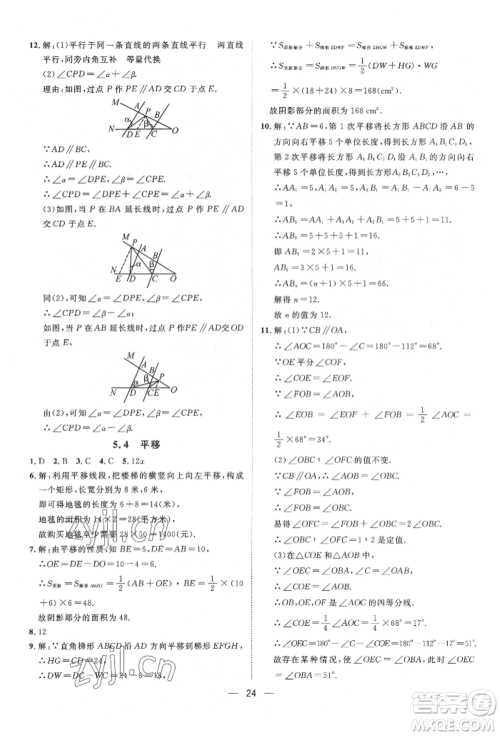 12.解:(1)平行于同一条直线的两条直线平行　两直线
平行,同旁内角互补　等量代换
(2)∠CPD=∠α+∠β
理由:如图,过点P作PE∥AD交
CD于点E.
∵AD∥BC,
∴AD∥PE∥BC,
∴∠α=∠DPE,∠β=∠CPE,
∴∠CPD=∠DPE+∠CPE=∠α+∠β.
(3)如图,当P在BA延长线时,过点P作PE∥AD
交CD于点E.
同(2),可知∠α=∠DPE,∠β=∠CPE,
∴∠CPD=∠β-∠α;
如图,当P在AB延长线上时,
同(2),可知∠α=∠DPE,∠β=∠CPE,
∴∠CPD=∠α-∠β.
5.4　平移
1.D　2.B　3.C　4.C　5.12x
6.解:利用平移线段,把楼梯的横竖向上向左平移,构
成一个矩形,长宽分别为8米,6米,
即可得地毯的长度为6+8=14(米),
地毯的面积为14×2=28(平方米),
故购买地毯至少需要28×50=1400(元).
7.解:由平移的性质知,BE=6,DE=AB=10,
∴OE=DE-DO=10-4=6,
∴S阴影=S梯形ABEO=1/2(AB+OE)·BE=1/2×(10
+6)×6=48.
故阴影部分面积为48.
8.12
9.解:∵直角梯形ABCD沿AD方向平移到梯形EFGH,
∴HG=CD=24,
∴DW=DC-WC=24-6=18,
∵S阴影部分+S梯形EDWF=S梯形DHGW+S梯形EDWF,
∴S阴影部分=S梯形DHGW=1/2(DW+HG)·WG=
1/2×(18+24)×8=168(cm²).
故阴影部分的面积为168 cm².
10.解:∵AB=6,第1次平移将长方形ABCD沿AB的
方向向右平移5个单位长度,得到长方形A₁B₁C₁D₁,
第2次平移将长方形A₁B₁C₁D₁沿A₁B₁的方向向右
平移5个单位长度,得到长方形A₂B₂C₂D₂…,
∴AA₁=5,A₁A₂=5,A₂B₁=A₁B₁-A₁A₂=6-
5=1,
∴AB₁=AA₁+A₁A₂+A₂B₁=5+5+1=11,
∴AB₂=5+5+5+1=16.
即AB₁=11,AB₂=16.
∵AB₁=2×5+1=11,AB₂=3×5+1=16,
∴ABₙ=(n+1)×5+1=66.
解得n=12.
故n的值为12.
11.解:(1)∵CB∥OA,
∴∠AOC=180°-∠C=180°-112°=68°.
∵OE平分∠COF,
∴∠COE=∠EOF,
∵∠FOB=∠AOB,
∴∠EOB=∠EOF+∠FOB=1/2∠AOC=1/2
×68°=34°.
(2)∠OBC∶∠OFC的值不变.
∵CB∥OA,
∴∠OBC=∠AOB,
∵∠FOB=∠AOB,
∴∠FOB=∠OBC.
易得∠OFC=∠FOB+∠OBC=2∠OBC.
∴∠OBC∶∠OFC=1∶2,是定值.
(3)在△COE和△AOB中,
∵∠OEC=∠OBA,∠C=∠OAB,
∴∠COE=∠AOB,
∴OB、OE、OF是∠AOC的四等分线,
∴∠COE=1/4∠AOC=1/4×68°=17°.
∴∠OEC=180°-∠C-∠COE=180°-112°-
17°=51°.
故存在某种情况,使∠OEC=∠OBA,此时∠OEC
=∠OBA=51°.
24